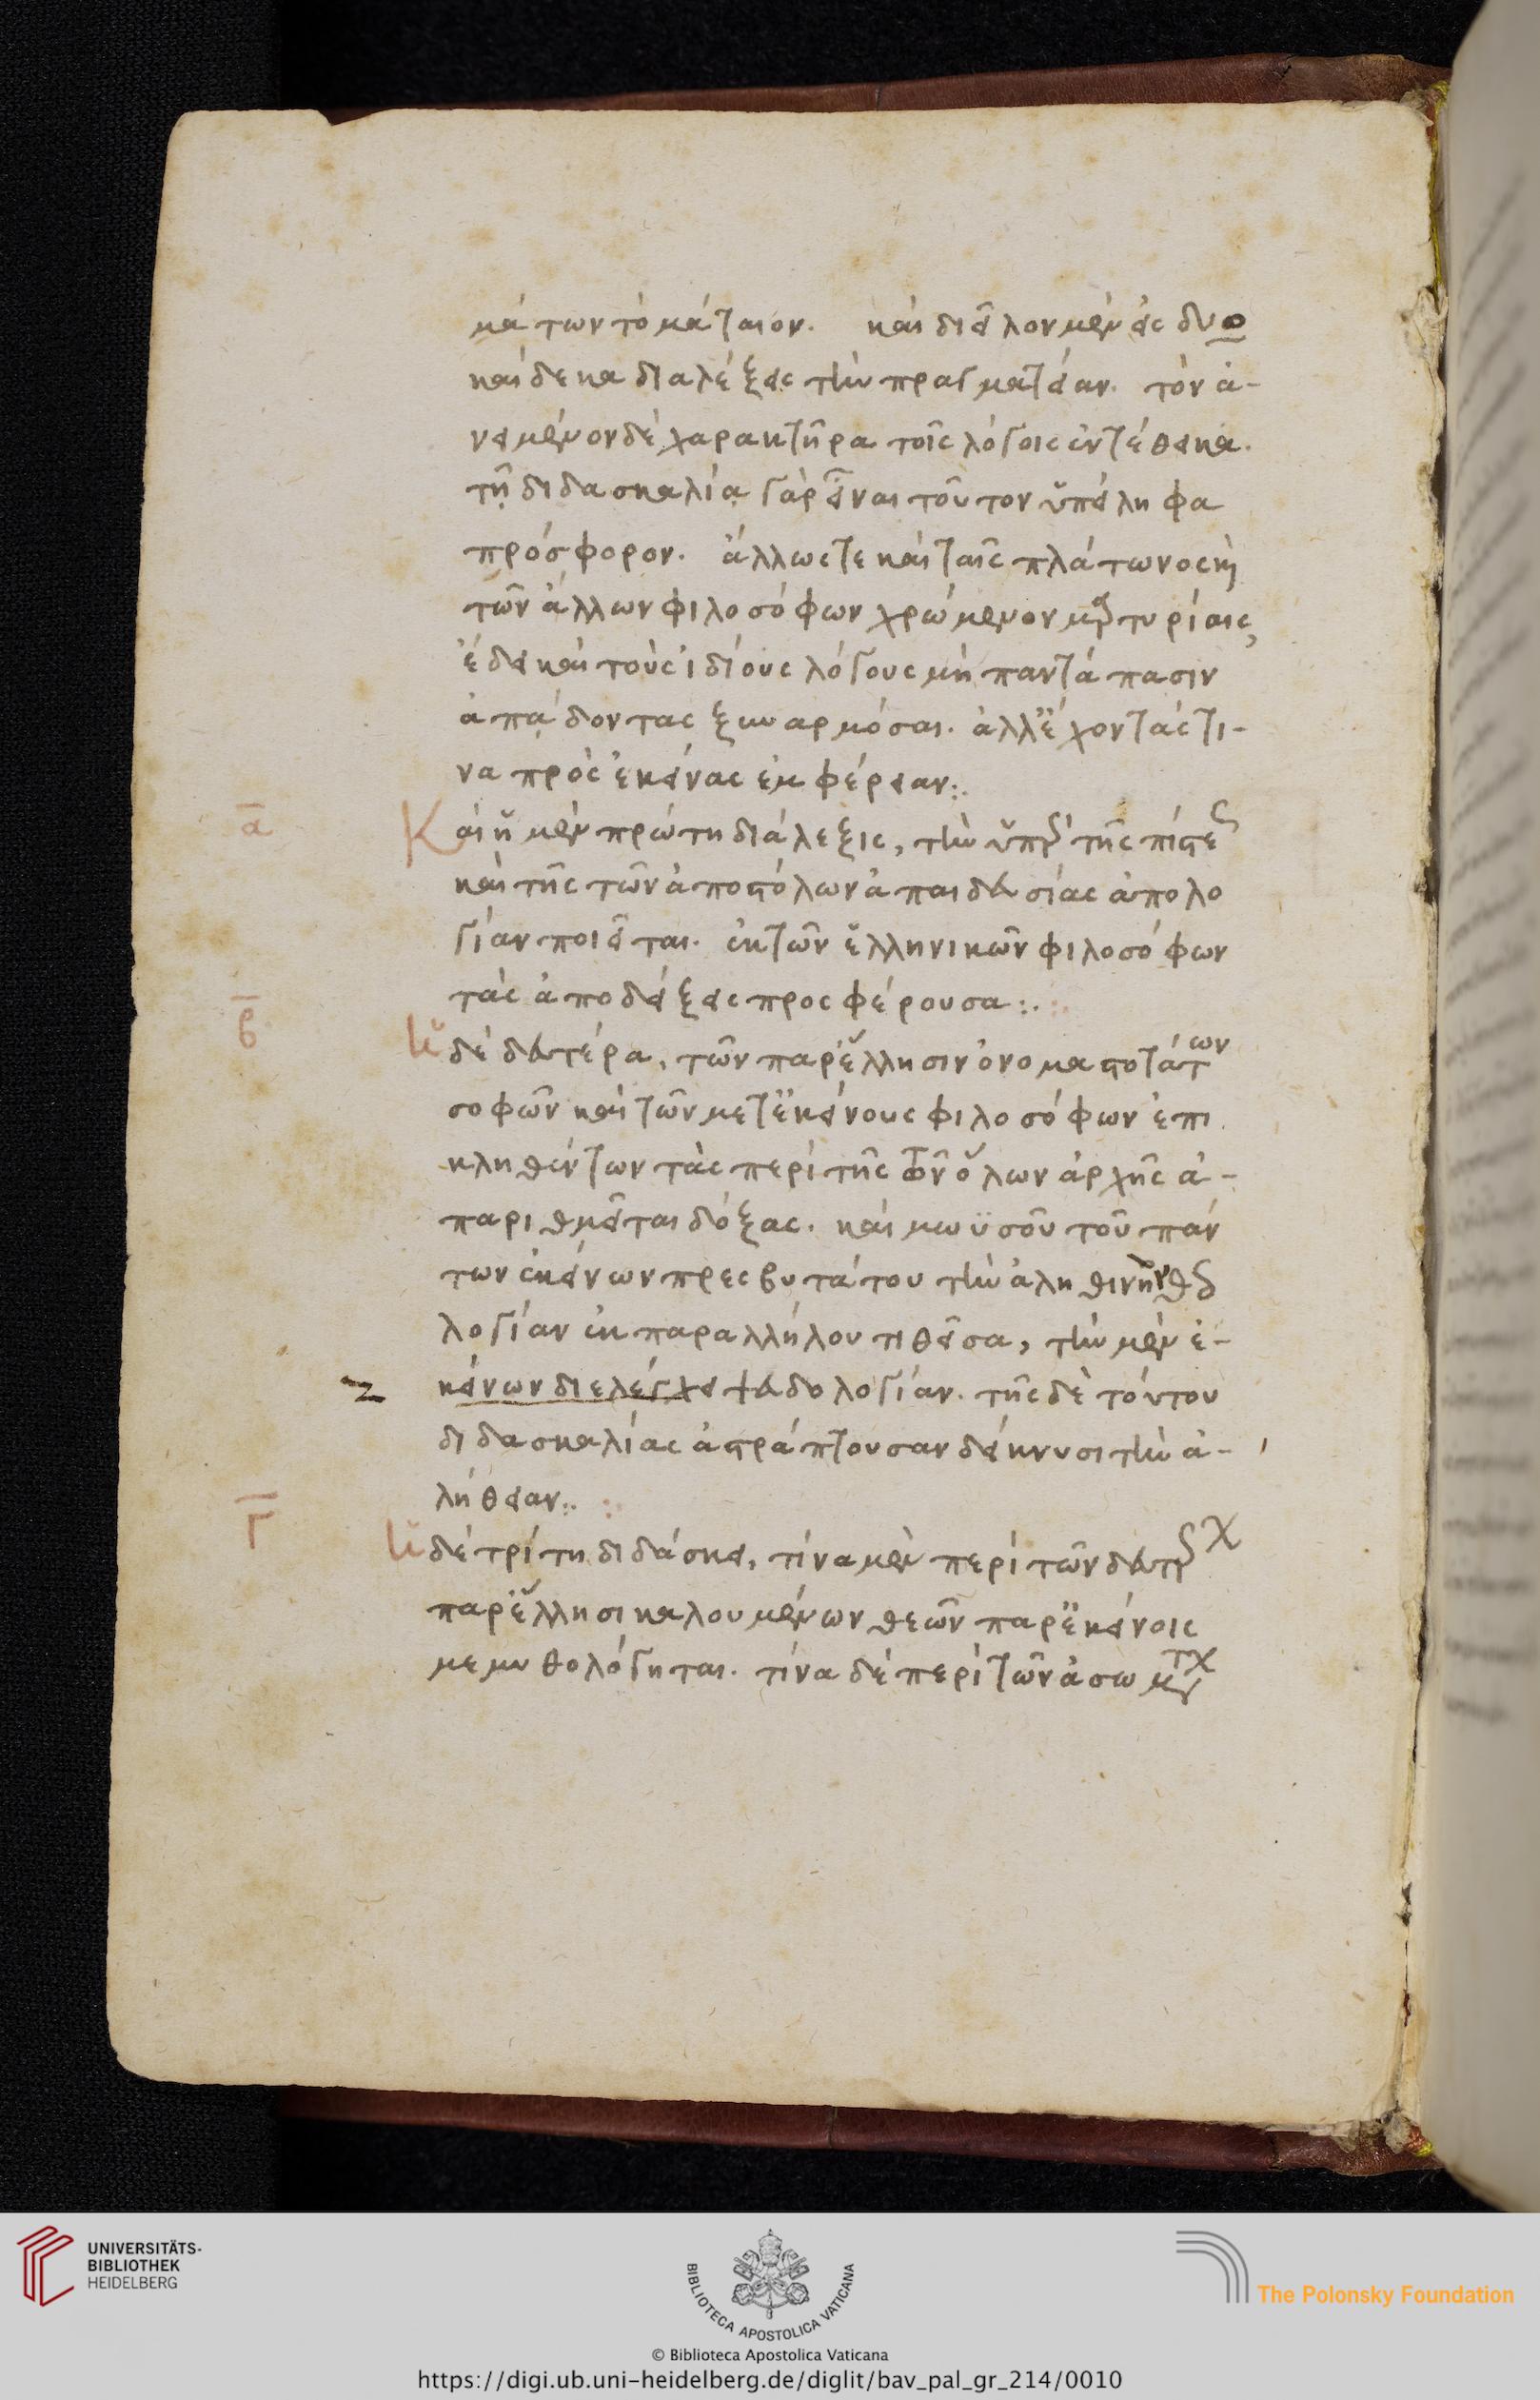 μάτων τὸ μάταιον. καὶ διεῖλον μὲν εἰς δυο
καίδεκα διαλέξεις τὴν πραγματείαν. τὸν ἀ-
νειμένον δὲ χαρακτῆρα τοῖς λόγοις ἐντέθεικα.
τῇ διδασκαλίᾳ γὰρ εἶναι τοῦτον ὑπείληφα
πρόσφορον. ἄλλως τε καὶ ταῖς πλάτωνος καὶ
τῶν ἄλλων φιλοσόφων χρώμενον μρτυρίαις,
ἔδει καὶ τοὺς ἰδίους λόγους μὴ παντάπασιν
ἀπᾴδοντας ξυναρμόσαι. ἀλλ' ἔχοντάς τι-
να πρὸς ἐκείνας ἐμφέρειαν:.
α
Καὶ ἡ μὲν πρώτη διάλεξις, τὴν ὑπὲρ τῆς πίστεως
καὶ τῆς τῶν ἀποστόλων ἀπαιδευσίας ἀπολο
γίαν ποιεῖται. ἐκ τῶν ἑλληνικῶν φιλοσόφων
τὰς ἀποδείξεις προσφέρουσα:.
β
ἡ δὲ δευτέρα, τῶν παρ' ἕλλησιν ὀνομαστοτάτων
σοφῶν καὶ τῶν μετ' ἐκείνους φιλοσόφων ἐπι
κληθέντων τὰς περὶ τῆς τῶν ὅλων ἀρχῆς ἀ-
παριθμεῖται δόξας. καὶ μωϋσοῦ τοῦ πάν
των ἐκείνων πρεσβυτάτου τὴν ἀληθινὴν θεο
λογίαν ἐκ παραλλήλου τιθεῖσα, τὴν μὲν ἐ-
κείνων διελέγχει ψευδολογίαν. τῆς δὲ τούτου
διδασκαλίας ἀστράπτουσαν δείκνυσι τὴν ἀ-
λήθειαν:.
Γ
ἡ δὲ τρίτη διδάσκει, τίνα μὲν περὶ τῶν δευτέρων
παρ' ἕλλησι καλουμένων θεῶν παρ' ἐκείνοις
μεμυθολόγηται. τίνα δὲ περὶ τῶν ἀσωμάτων
UNIVERSITÄTS-
BIBLIOTHEK
HEIDELBERG
BIBLIOTECA APOSTOLICA VATICANA
The Polonsky Foundation
© Biblioteca Apostolica Vaticana
https://digi.ub.uni-heidelberg.de/diglit/bav_pal_gr_214/0010